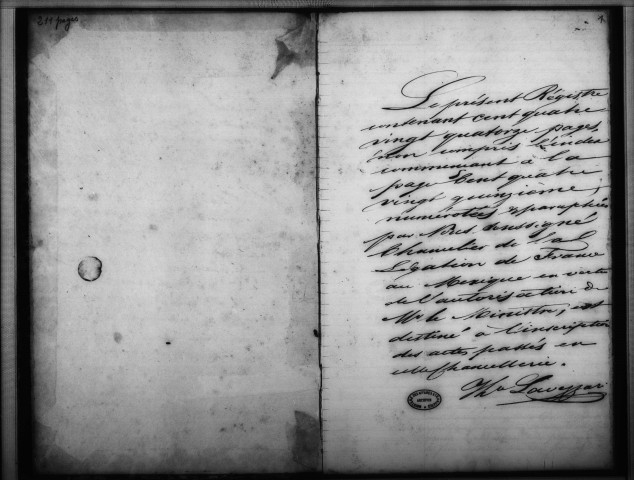 211 pages
1.
Le présent Régistre
contenant cent quatre
vingt quatorze pages,
non compris l'index
commençant à la
page Cent quatre
vingt quinzième,
numérotées & paraphées
par Nous soussigné
Chancelier de la
Légation de France
au Mexique en vertu
de l'autorisation de
Mr le Ministre, est
destiné à l'inscription
des actes passés en
cette Chancellerie.